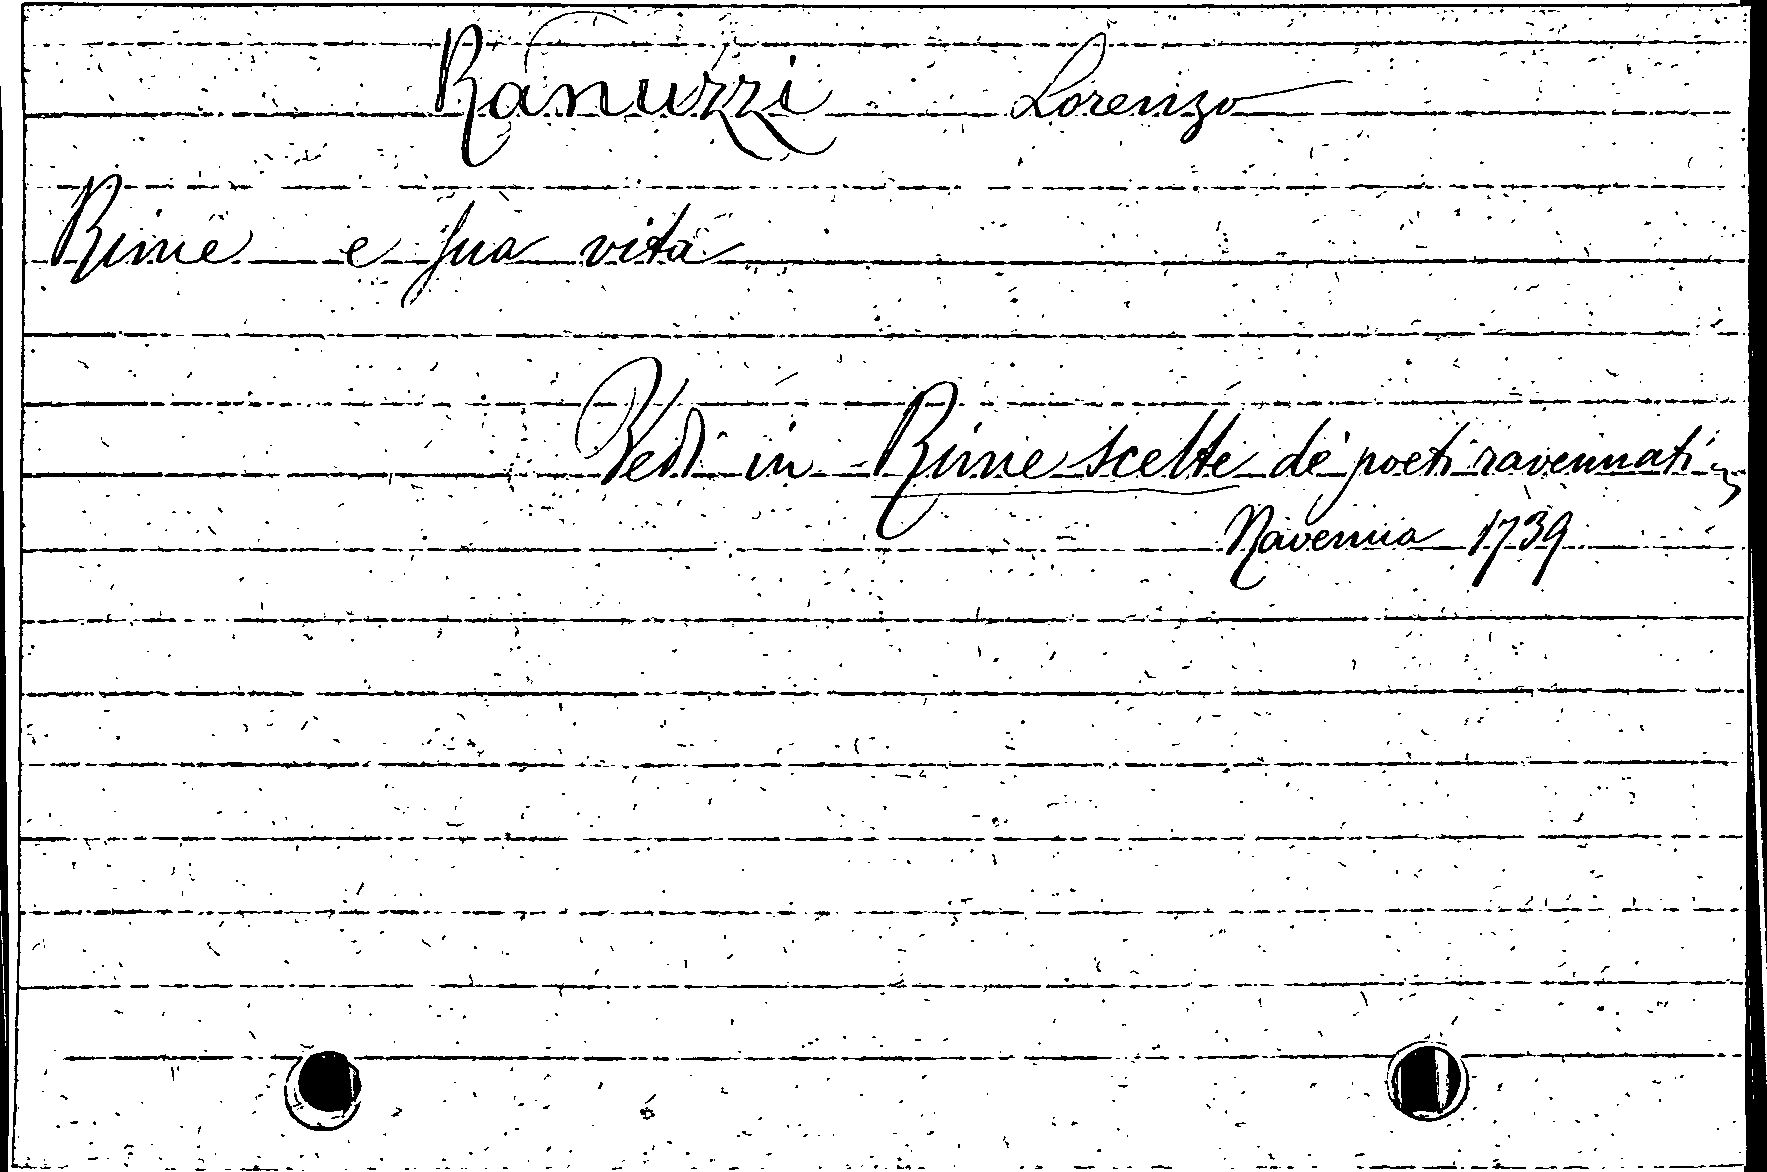 Ranuzzi Lorenzo
Rime e sua vita
Vedi in Rime scelte de' poeti ravennati,
Ravenna 1739